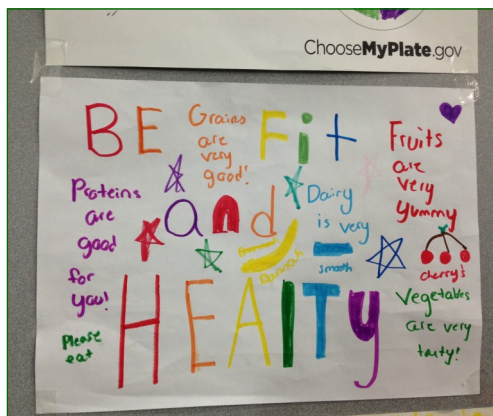 ChooseMyPlate.gov
BE Fit
and
HEAlTy
Grains
are
very
good!
Fruits
are
very
yummy
cherry's
Proteins
are
good
for
you!
Dairy
is very
smooth
Please
eat
Vegetables
are very
tasty!